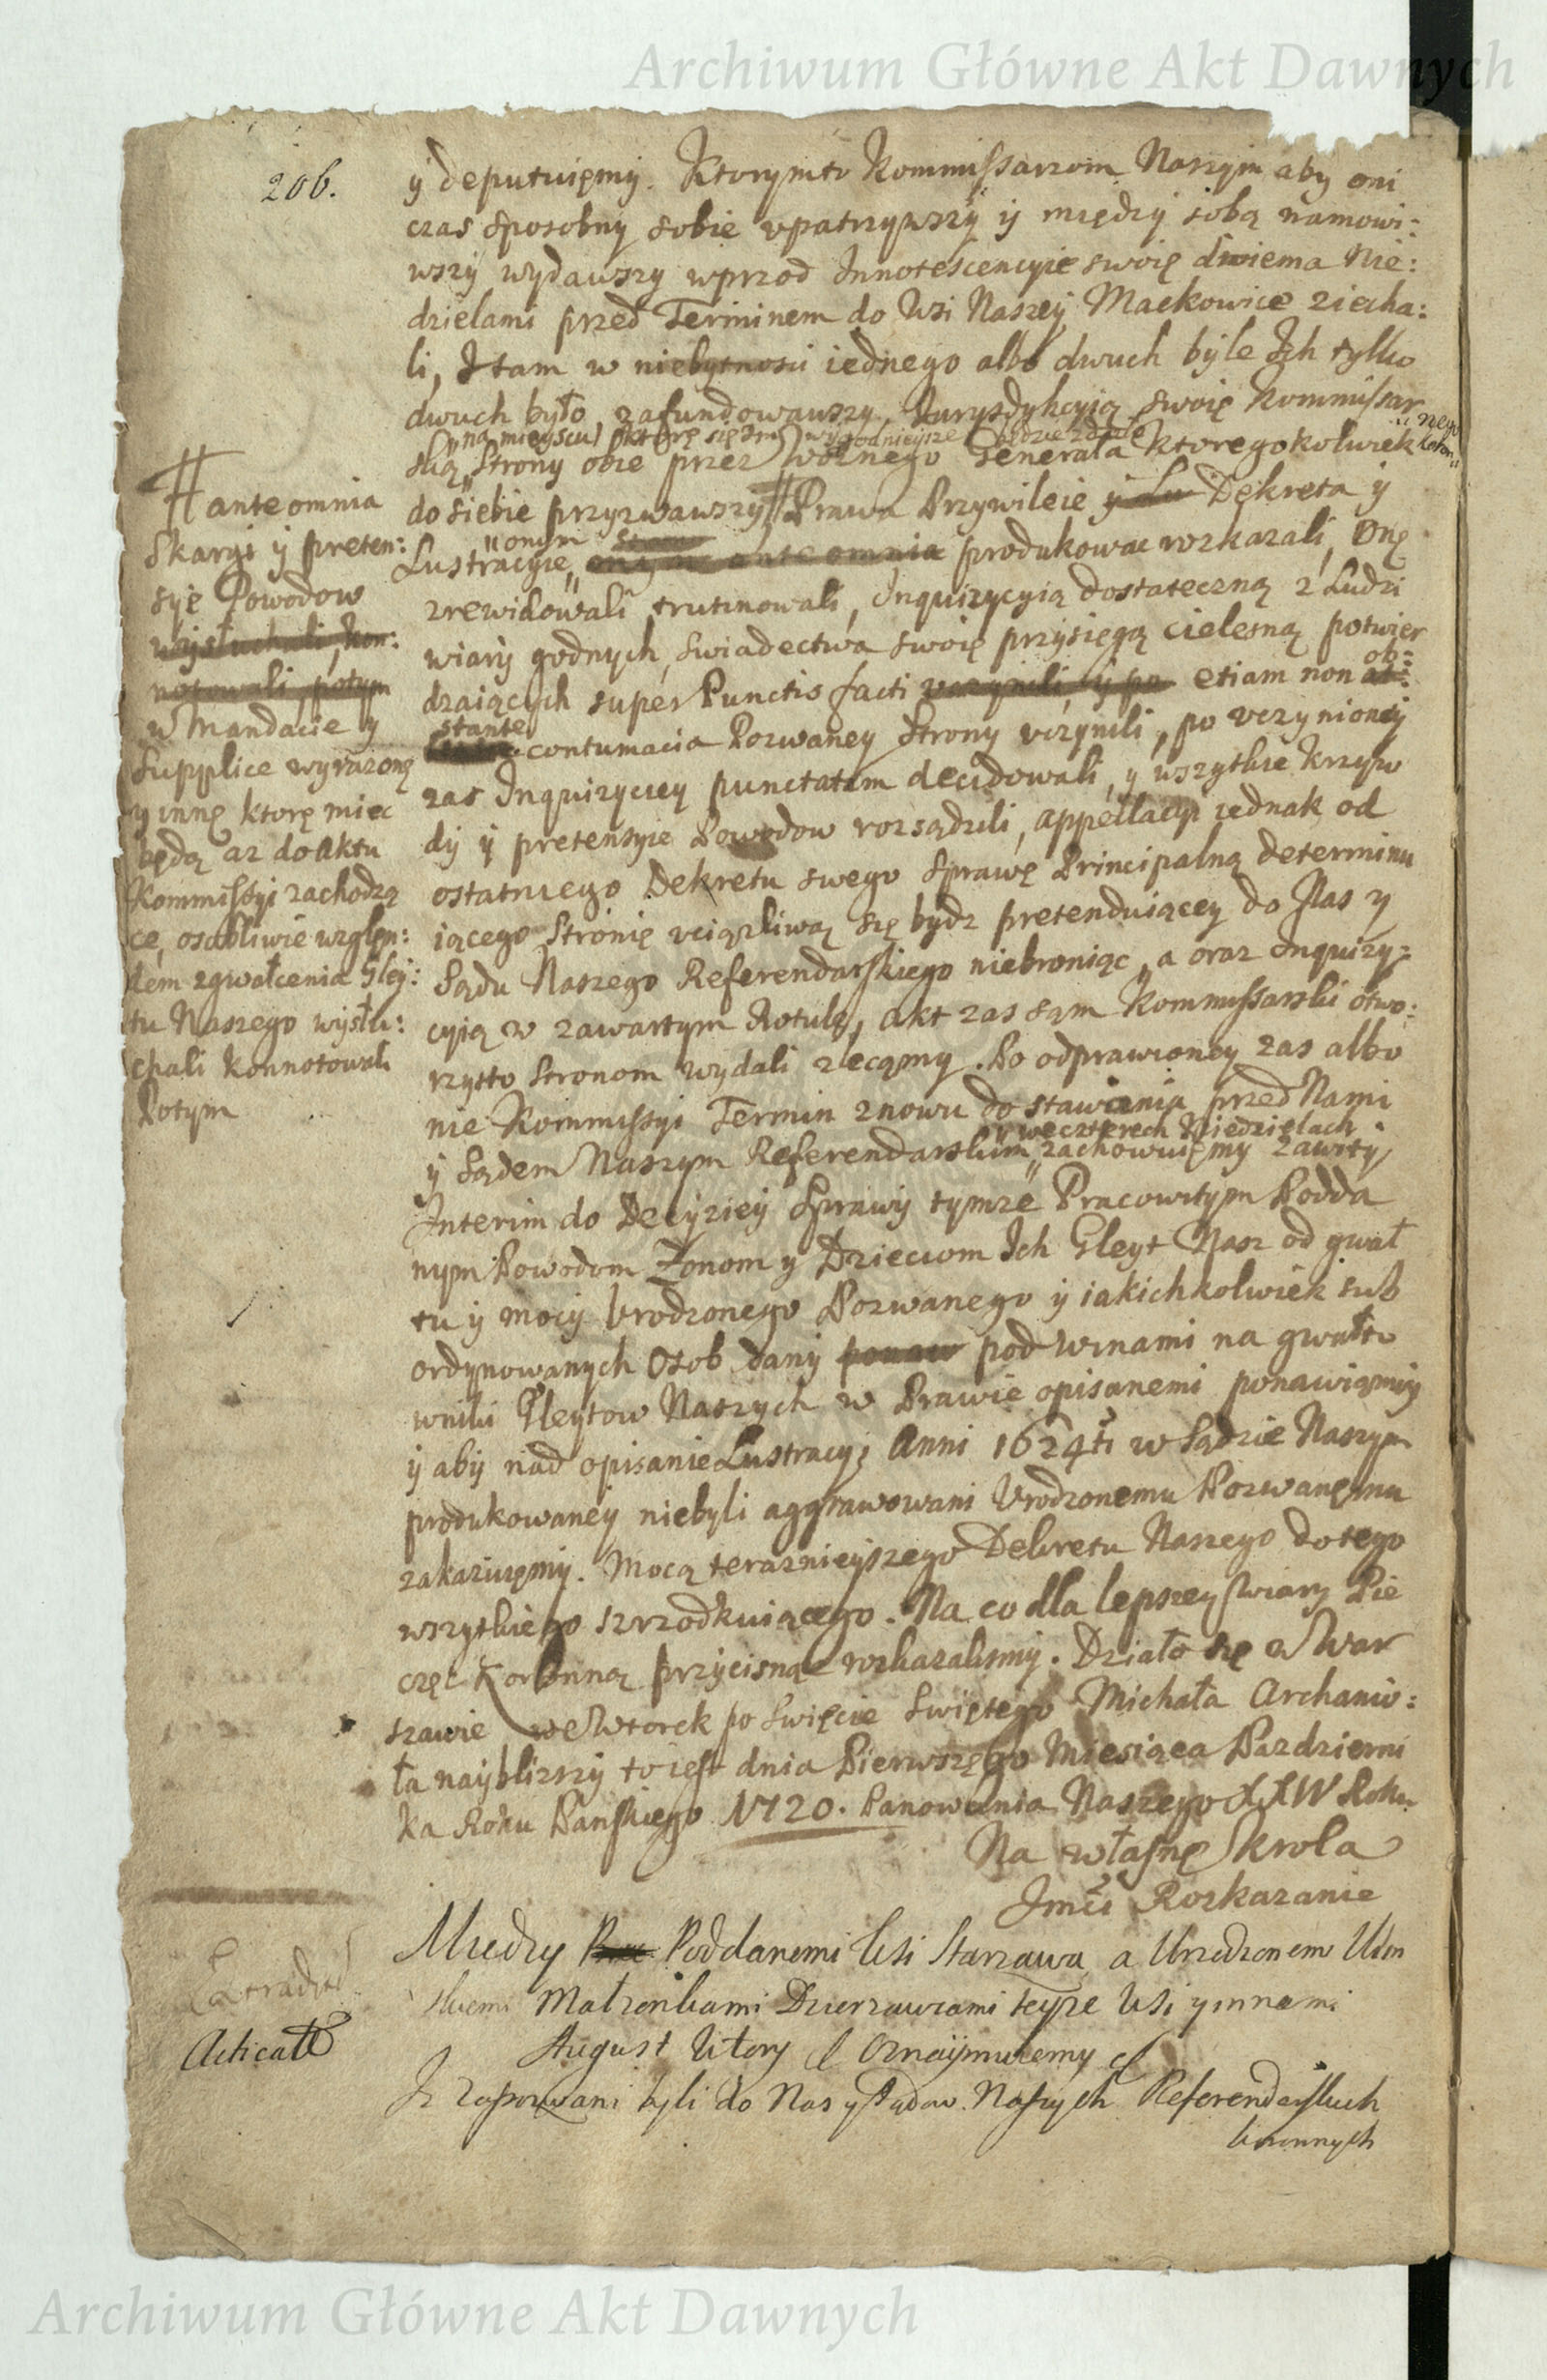 Archiwum Główne Akt Dawnych
206.
y deputuięmy. Ktorymto Kommissarzom Naszym aby oni
czas sposobny sobie upatrzywszy y między sobą namowi:
wszy wydawszy wprzod Innotescencyie swoię dwiema Nie:
dzielami przed Terminem do Wsi Naszey Mackowice ziecha:
li, I tam w niebytnosci iednego albo dwuch byle Ich tylko
dwuch było, zafundowawszy Jurysdykcyią swoię Kommissar
na mieyscu ktorę się Im wygodnieysze będzie zdało
ską Strony obie przez Woznego Generała ktoregokolwiek
do siebie przyzwawszy # Prawa Przywileie y Lu Dekreta y
onym
Lustracyie ante omnia produkowac rozkazali, Onę
zrewidowali trutinowali, Inquizycyią dostateczną z Ludzi
wiary godnych, swiadectwa swoię przysięgą cielesną potwier
dzaiących super Punctis facti uczynili, y po etiam non ob=
stante
contumacia Pozwaney Strony uczynili, po uczynioney
zas Inquizyciey punctatim decidowali, y wszytkie krzyw
dy y pretensyie Powodow rozsądzili, appellacyi iednak od
ostatniego Dekretu swego Sprawę Principalną determinu
iącego Stronię uciązliwą się bydz pretenduiącey do Nas y
Sądu Naszego Referendarskiego niebroniąc, a oraz Inquizy=
cyią w zawartym Rotulę, akt zas sąm Kommissarski otwo:
rzysto Stronom wydali zlecąmy. Po odprawioney zas albo
nie Kommissyi Termin znowu do stawienia przed Nami
we czterech Niedzielach
y Sądem Naszym Referendarskim zachowuięmy zawity,
Interim do Decyziey Sprawy tymze Pracowitym Podda
nym Powodom Zonom y Dzieciom Ich Gleyt Nasz od gwał
tu y mocy Urodzonego Pozwanego y iakichkolwiek sub
ordynowanych Osob dany ponaw pod winami na gwałto
wniki Gleytow Naszych w Prawie opisanemi ponawiąmy
y aby nad opisanie Lustracyi Anni 1624ti w Sądzie Naszym
produkowaney niebyli aggrawowani Urodzonemu Pozwanęmu
zakazuięmy. Mocą teraznieyszego Dekretu Naszego do tego
wszytkiego szrzodkuiącego. Na co dla lepszey wiary Pie
częc Koronną przycisnąc rozkazalismy. Działo się w War
szawie we Wtorek po Swięcie Swiętego Michała Archanio:
ła nayblizszy to iest dnia Pierwszęgo Miesiąca Pazdzierni
ka Roku Panskiego 1720. Panowania Naszego XXIV Roku
Na własnę Krola
Jmci Rozkazanie
# ante omnia
Skargi y preten:
syę Powodow
wysłuchali, kon:
notowali, potym
w Mandacie y
Supplice wyrazonę
y innę ktorę miec
będą az do aktu
Kommissyi zachodzą
ce, osobliwie wzglen:
dem zgwałcenia Gley:
tu Naszego wysłu:
chali konnotowali
Potym
Miedzy Poddanemi Wsi Starzawa a Urodzonemi
Małzonkami Dzierzawcami teyze Wsi y innemi
Acticatt
August Wtory Oznaymuiemy
Iz Zapozwani byli do Nas y Sądow Naszych Referendarskich
koronnych
Archiwum Główne Akt Dawnych